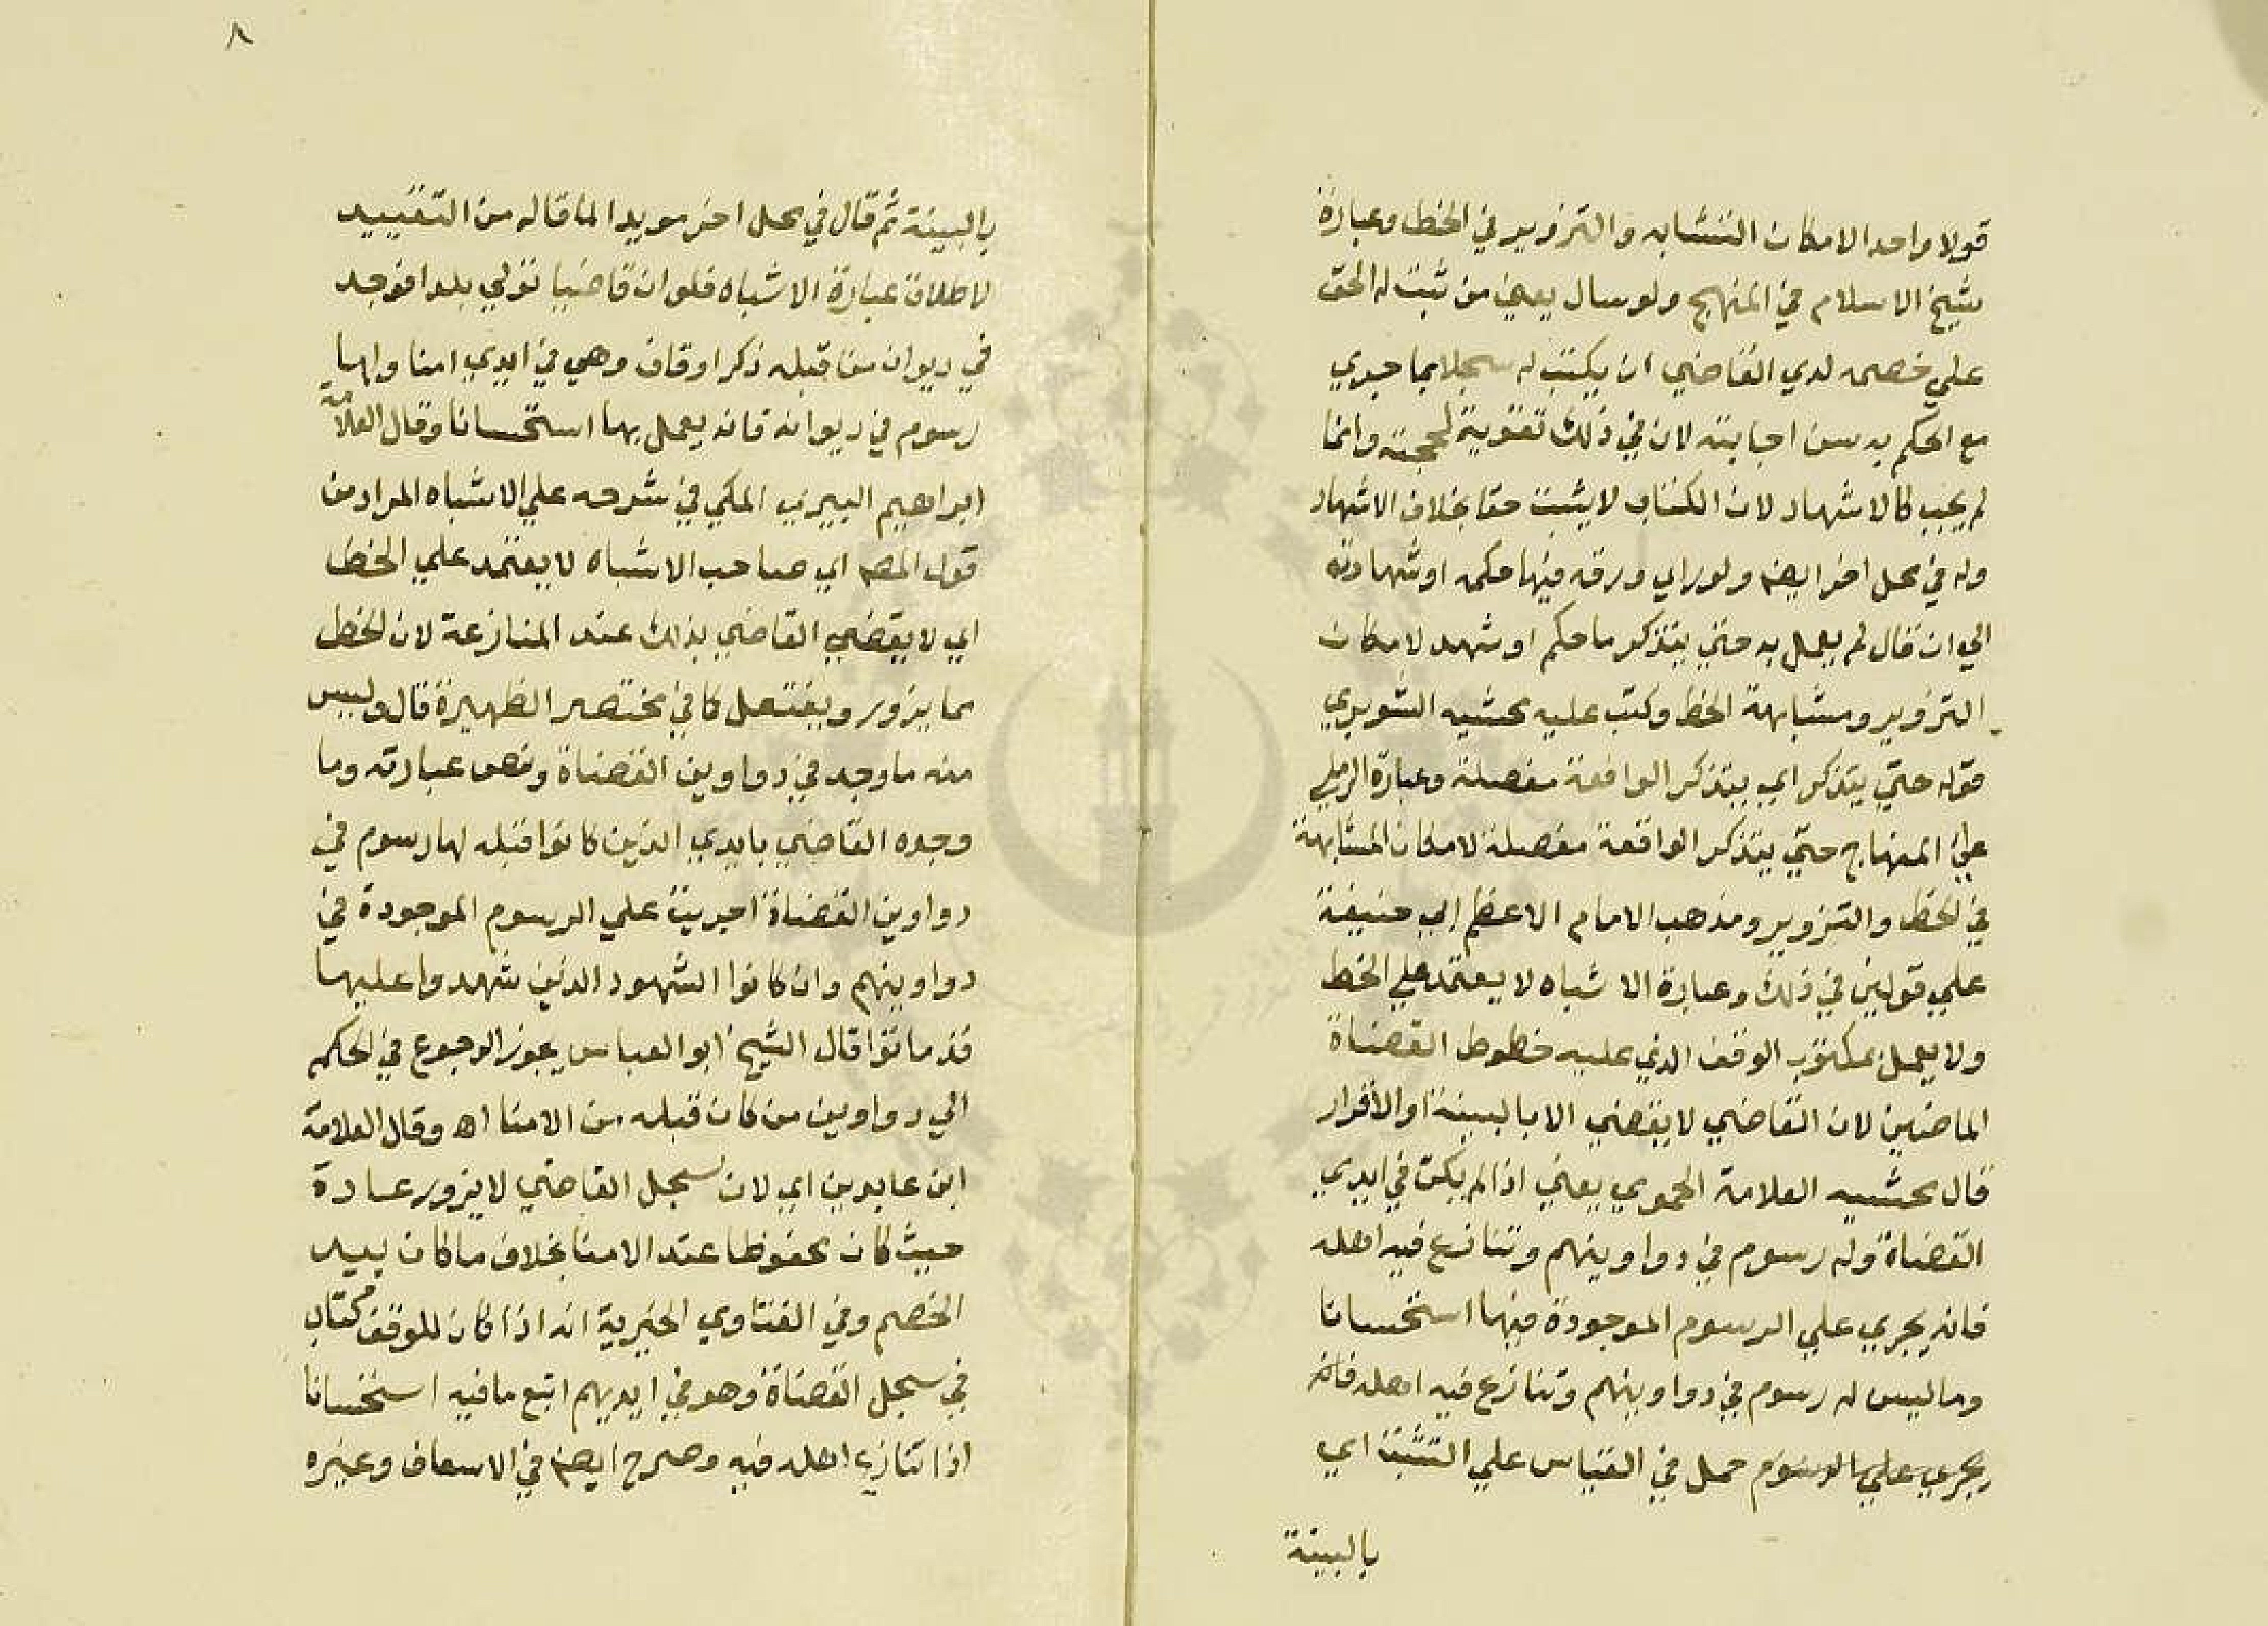 قولا واحدا لامكان التشابه والتزوير في الخط وعبارة
شيخ الاسلام في المنهج ولو سال يعني من ثبت له الحق
علي خصمه لدي القاضي ان يكتب له سجلا بما جري
مع الحكم به سن اجابته لان في ذلك تقوية لحجته وانما
لم يجب كالاشهاد لان الكتاب لا يثبت حقا بخلاف الاشهاد
وله في محل اخر ايضه ولو راي ورقه فيها حكمه او شهادته
الي ان قال لم يعمل به حتي يتذكر ما حكم او شهد لامكان
التزوير ومشابهة الخط وكتب عليه محشيه الشوبري
قوله حتي يتذكر اي يتذكر الواقعة مفصلة وعبارة الرملي
علي المنهاج حتي يتذكر الواقعة مفصلة لامكان المشابهة
في الخط والتزوير ومذهب الامام الاعظم ابي حنيفة
علي قولين في ذلك وعبارة الاشباه لا يعتمد علي الخط
ولا يعمل بمكتوب الوقف الذي عليه خطوط القضاة
الماضين لان القاضي لا يقضي الا بالبينة او الاقرار
قال محشيه العلامة الحموي يعني اذا لم يكن في ايدي
القضاة وله رسوم في دواوينهم وتنازع فيه اهله
فانه يجري علي الرسوم الموجودة فيها استحسانا
وما ليس له رسوم في دواوينهم وتنازع فيه اهله فانه
يجري علي الرسوم حمل في القياس علي التثبت اي
بالبينة
٨
بالبينة ثم قال في محل اخر مويدا لما قاله من التقييد
لاطلاق عبارة الاشباه فلو ان قاضيا تولي بلدا فوجد
في ديوان من قبله ذكر اوقاف وهي في ايدي امنا ولها
رسوم في ديوانه فانه يعمل بها استحسانا وقال العلامة
ابراهيم البيري المكي في شرحه علي الاشباه المراد من
قول المصـ اي صاحب الاشباه لا يعتمد علي الخط
اي لا يقضي القاضي بذلك عند المنازعة لان الخط
مما يزور ويفتعل كما في مختصر الظهيرة قال وليس
منه ما وجد في دواوين القضاة ونص عبارته وما
وجده القاضي بايدي الذين كانوا قبله لها رسوم في
دواوين القضاة اجريت علي الرسوم الموجودة في
دواوينهم وان كانوا الشهود الذين شهدوا عليها
قد ماتوا قال الشيخ ابو العباس يجوز الرجوع في الحكم
الي دواوين من كان قبله من الامنا اهـ وقال العلامة
ابن عابدين اي لان سجل القاضي لا يزور عادة
حيث كان محفوظا عند الامنا بخلاف ما كان بيد
الخصم وفي الفتاوي الخيرية انه اذا كان للوقف كتاب
في سجل القضاة وهو في ايديهم اتبع ما فيه استحسانا
اذا تنازع اهله فيه وصرح ايضه في الاسعاف وغيره